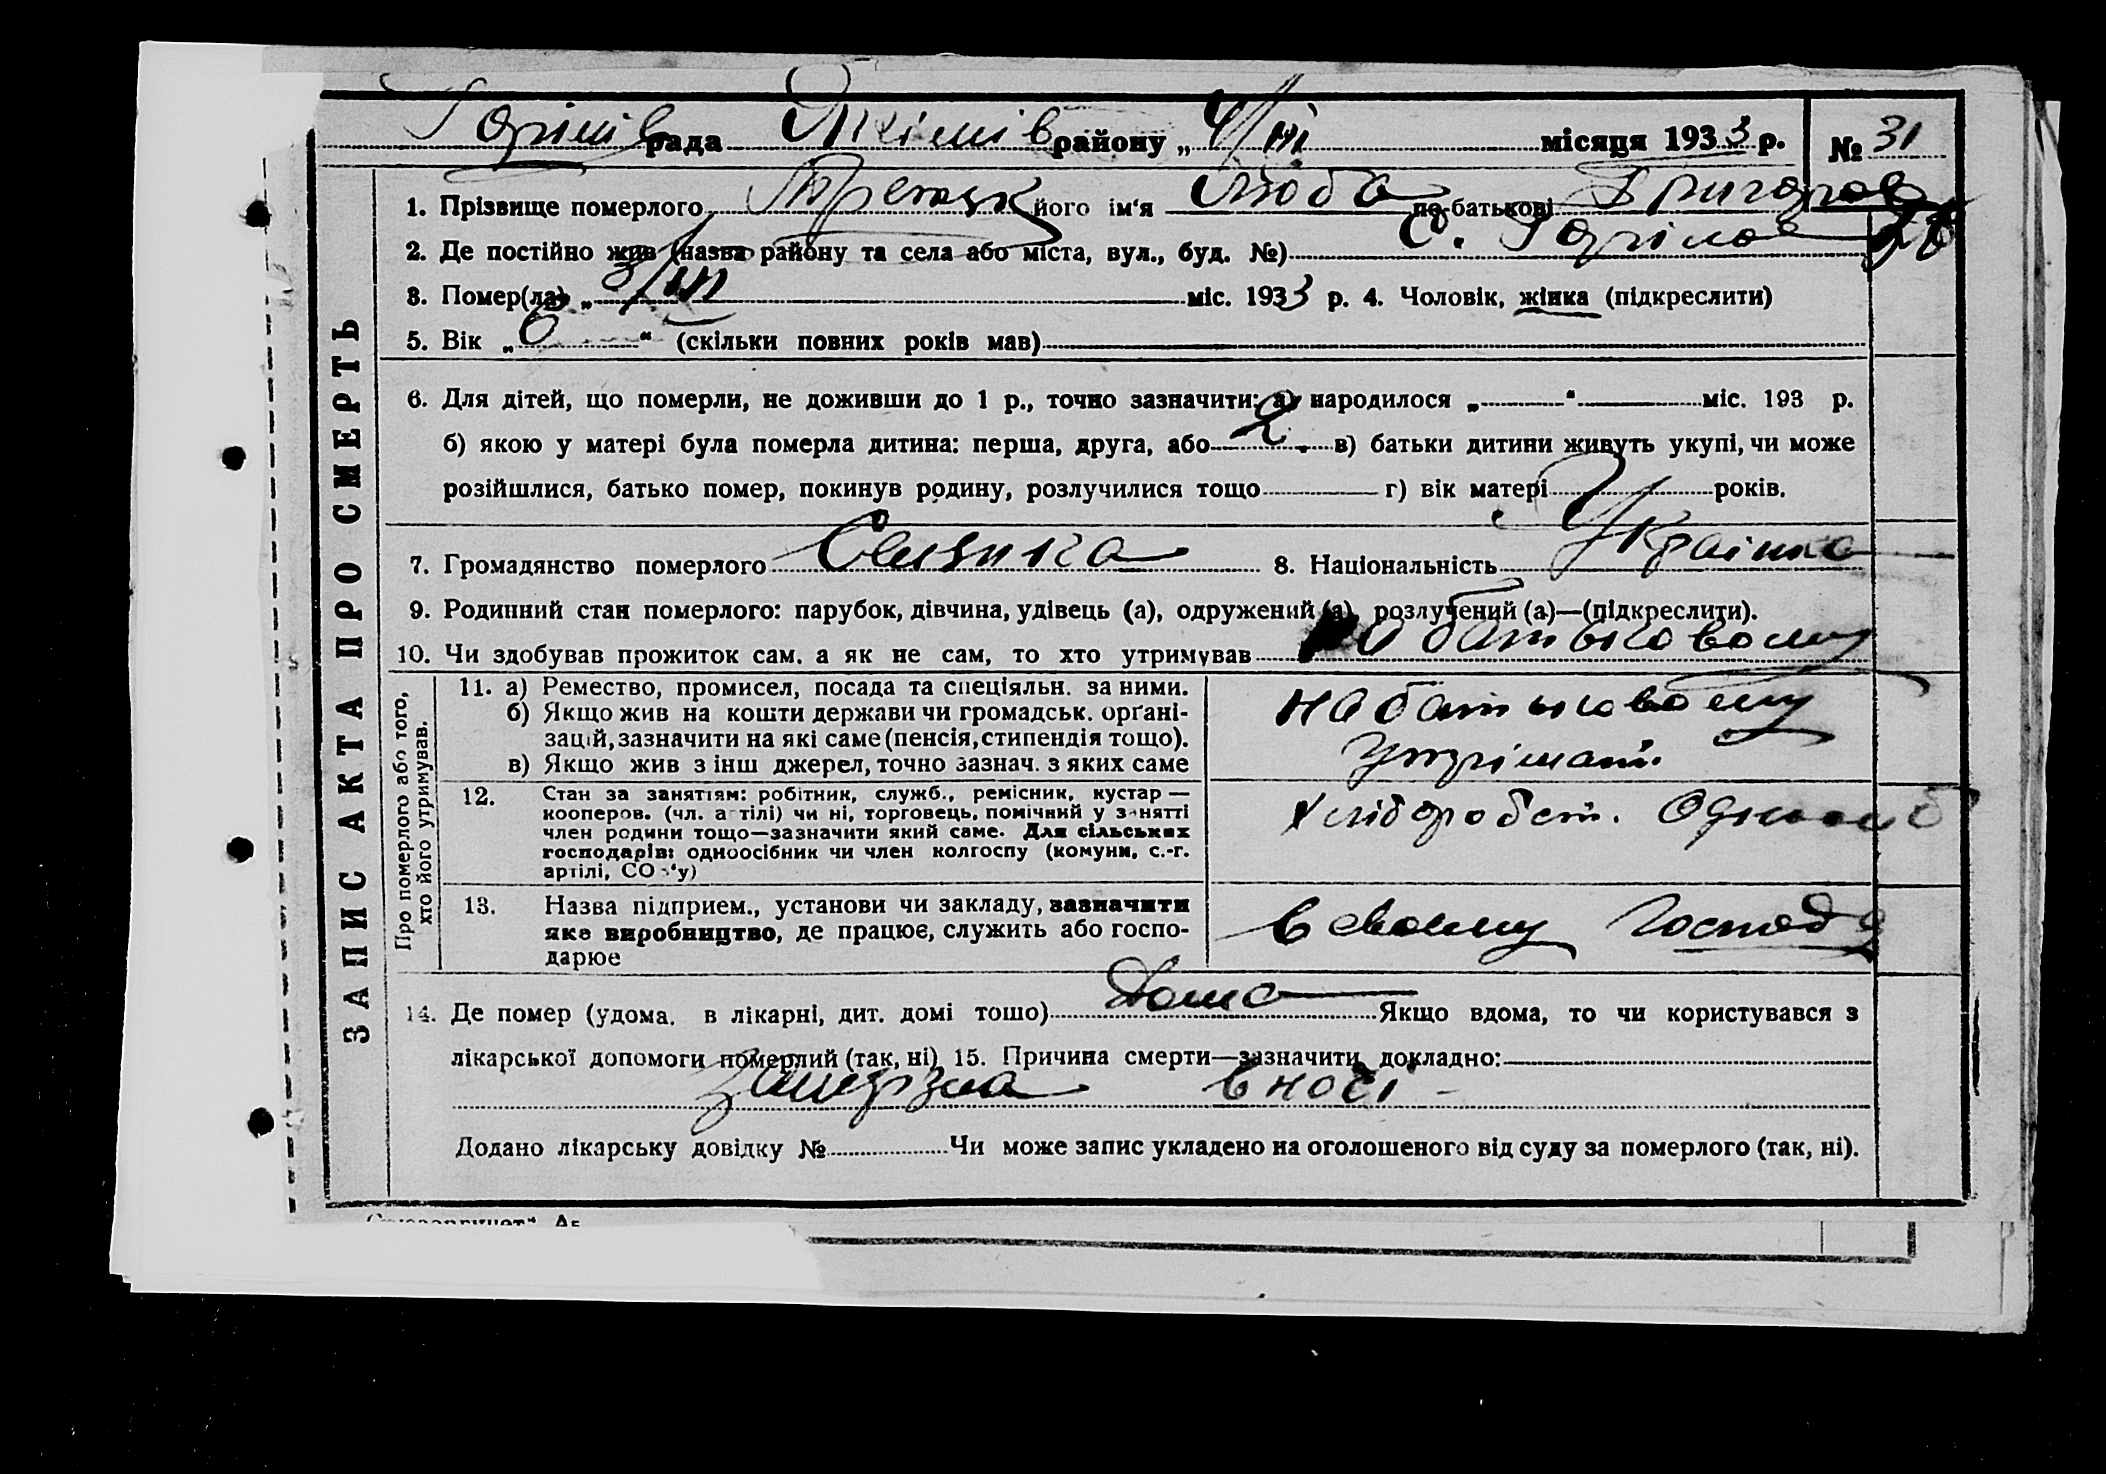 рада району „4/III місяця 1933 р. № 31
ЗАПИС АКТА ПРО СМЕРТЬ
1. Прізвище померлого його ім'я Люба по-батькові Григоров
2. Де постійно жив (назва району та села або міста, вул., буд. №) С.
3. Помер(ла) „3/III міс. 1933 р. 4. Чоловік, жінка (підкреслити)
5. Вік „6 “ (скільки повних років мав)
6. Для дітей, що померли, не доживши до 1 р., точно зазначити: а) народилося „ “ міс. 193 р.
б) якою у матері була померла дитина: перша, друга, або 2 в) батьки дитини живуть укупі, чи може
розійшлися, батько помер, покинув родину, розлучилися тощо г) вік матері років.
7. Громадянство померлого 8. Національність Українка
9. Родинний стан померлого: парубок, дівчина, удівець (а), одружений (а), розлучений (а)—(підкреслити).
10. Чи здобував прожиток сам. а як не сам, то хто утримував на батьковому
Про померлого або того, хто його утримував.
11. а) Ремество, промисел, посада та спеціяльн. за ними.
б) Якщо жив на кошти держави чи громадськ. орґані-
зацій, зазначити на які саме (пенсія, стипендія тощо).
в) Якщо жив з інш джерел, точно зазнач. з яких саме
на батьковому
утрімані
12. Стан за заняттям: робітник, служб., ремісник, кустар —
кооперов. (чл. артілі) чи ні, торговець, помічний у занятті
член родини тощо—зазначити який саме. Для сільських
господарів: одноосібник чи член колгоспу (комуни, с.-г.
артілі, СО у)
Хлібороб Одноосіб
13. Назва підприєм., установи чи закладу, зазначити
яке виробництво, де працює, служить або госпо-
дарює
в своему господ
14. Де помер (удома, в лікарні, дит. домі тощо) Дома Якщо вдома, то чи користувався з
лікарської допомоги померлий (так, ні) 15. Причина смерти—зазначити докладно:
замерзла вночі
Додано лікарську довідку № Чи може запис укладено на оголошеного від суду за померлого (так, ні).